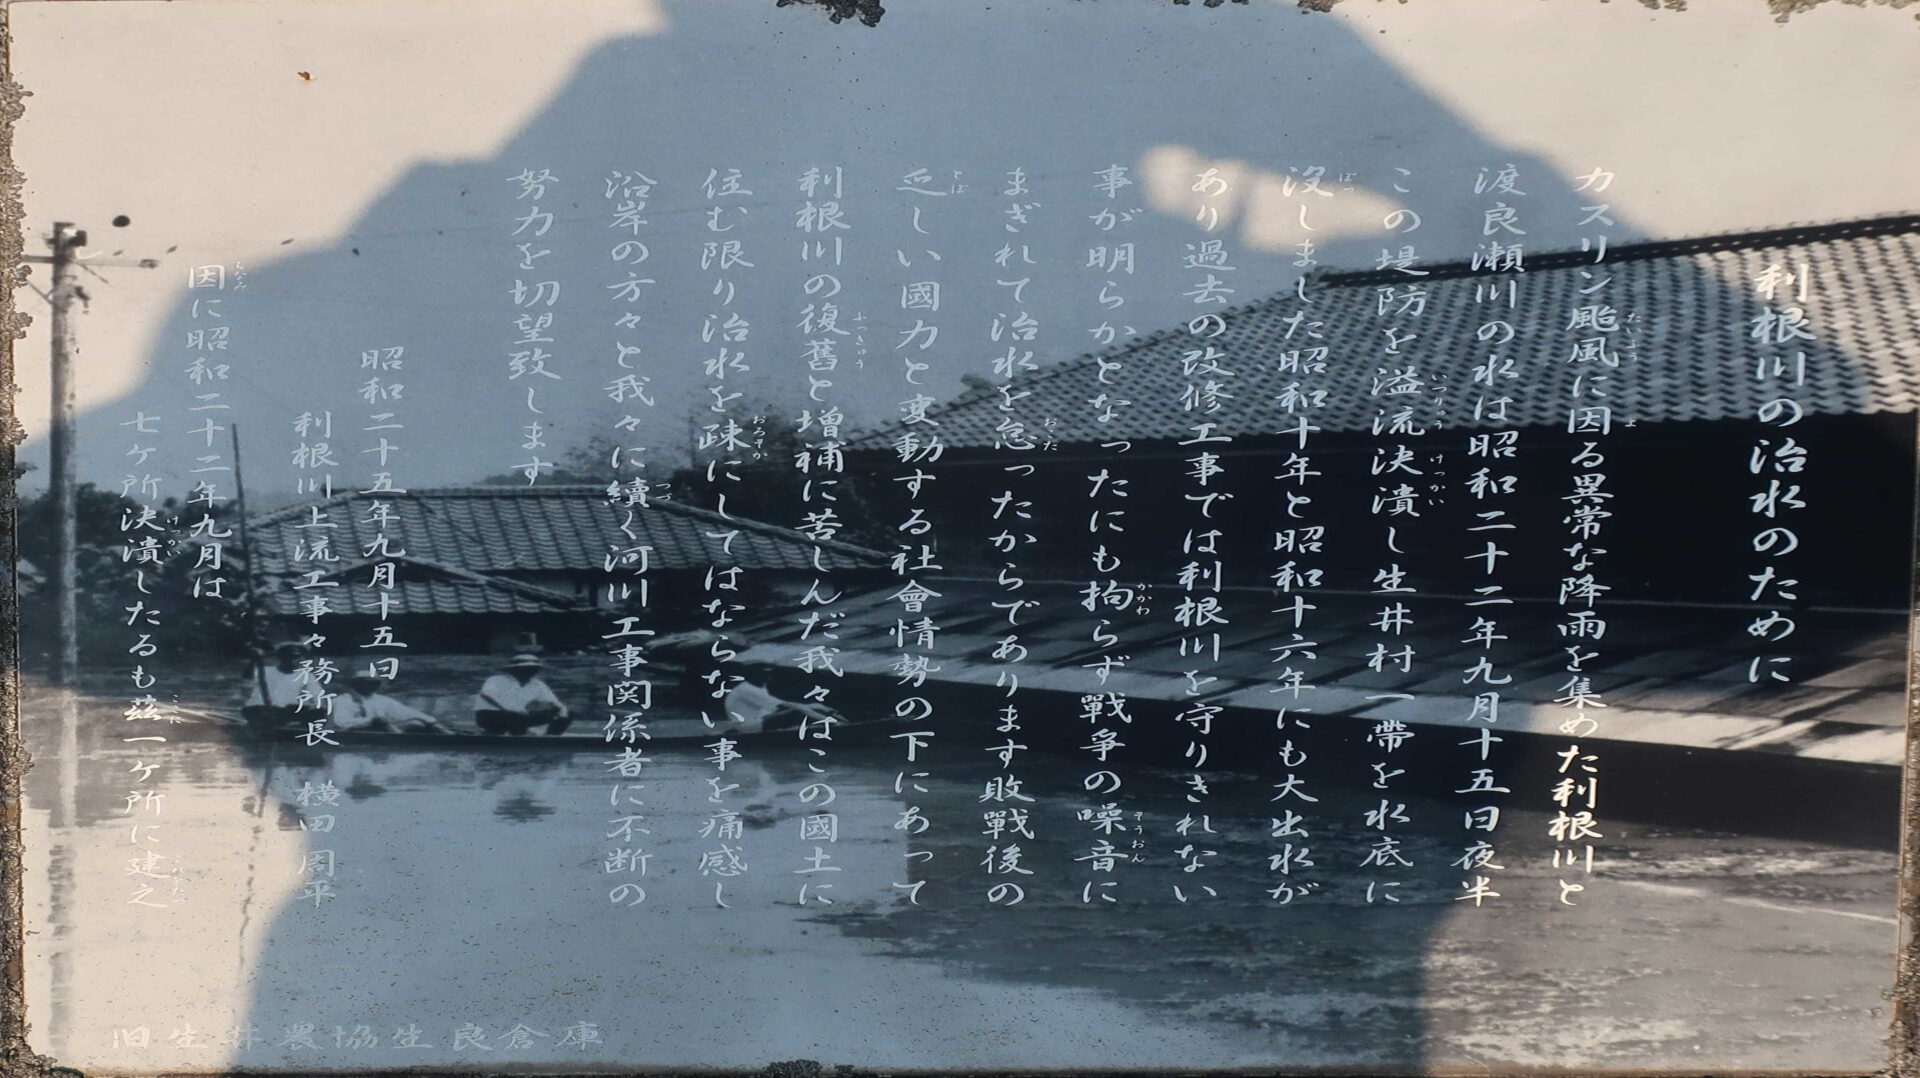 利根川の治水のために
カスリン颱風に因る異常な降雨を集めた利根川と
渡良瀬川の水は昭和二十二年九月十五日夜半
この堤防を溢流決潰し生井村一帶を水底に
没しました昭和十年と昭和十六年にも大出水が
あり過去の改修工事では利根川を守りきれない
事が明らかとなったにも拘らず戰爭の噪音に
まぎれて治水を怠ったからであります敗戰後の
乏しい國力と変動する社會情勢の下にあって
利根川の復舊と増補に苦しんだ我々はこの國土に
住む限り治水を疎にしてはならない事を痛感し
沿岸の方々と我々に續く河川工事関係者に不断の
努力を切望致します
昭和二十五年九月十五日
利根川上流工事々務所長 横田周平
因に昭和二十二年九月は
七ケ所決潰したるも茲一ケ所に建之
旧生井農協生良倉庫